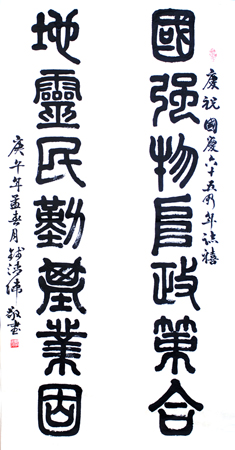 慶祝國慶六十五周年誌禧
國强物阜政策合
地靈民勤農業因
午年孟春月敬書